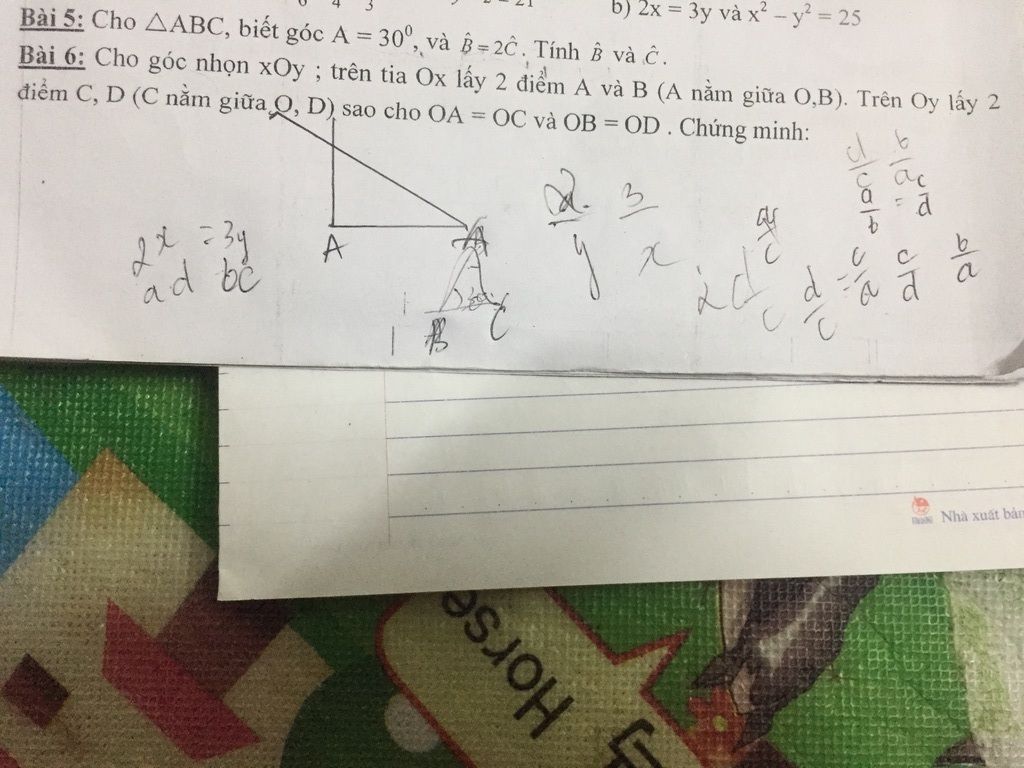 b) 2x = 3y và x² – y² = 25
Bài 5: Cho △ABC, biết góc A = 30⁰, và B̂ = 2Ĉ. Tính B̂ và Ĉ.
Bài 6: Cho góc nhọn xOy ; trên tia Ox lấy 2 điểm A và B (A nằm giữa O,B). Trên Oy lấy 2
điểm C, D (C nằm giữa O, D) sao cho OA = OC và OB = OD . Chứng minh:
d/c b/a
a/b = c/d
2x = 3y
ad bc
A
3
y x
d/c = c/a c/d b/a
B C
Nhà xuất bản
Horse